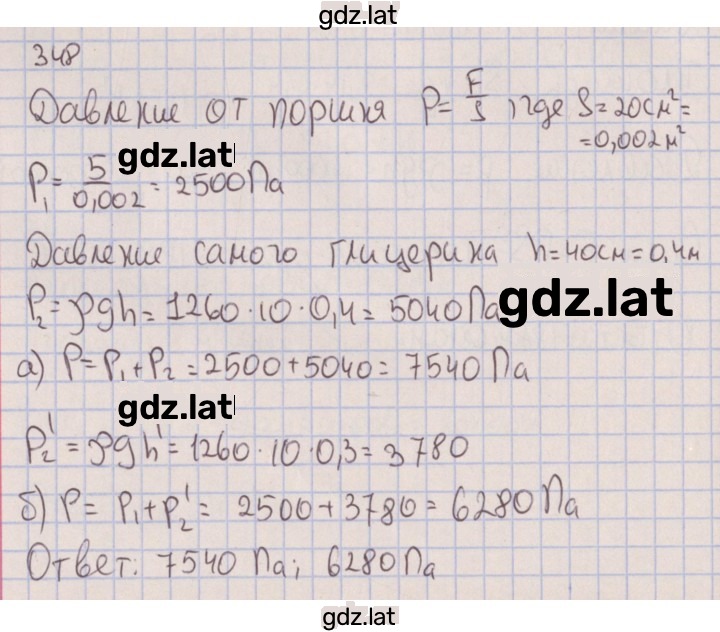 gdz.lat
348
Давление от поршня P = F/S, где S = 20 см² =
= 0,002 м²
gdz.lat
P₁ = 5/0,002 = 2500 Па
Давление самого глицерина h = 40 см = 0,4 м
P₂ = ρgh = 1260 · 10 · 0,4 = 5040 Па
gdz.lat
а) P = P₁ + P₂ = 2500 + 5040 = 7540 Па
gdz.lat
P₂' = ρgh' = 1260 · 10 · 0,3 = 3780
б) P = P₁ + P₂' = 2500 + 3780 = 6280 Па
Ответ: 7540 Па; 6280 Па
gdz.lat